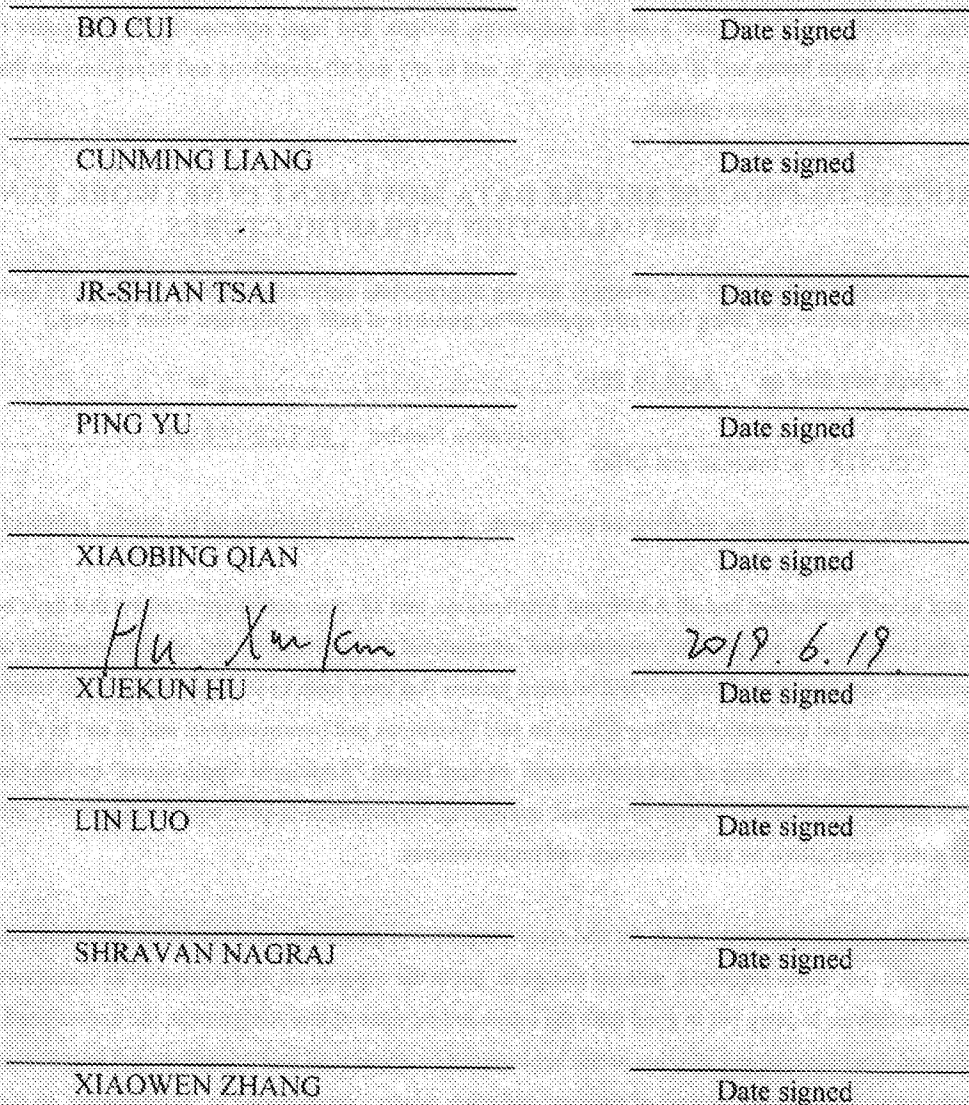 BO CUI Date signed
CUNMING LIANG Date signed
JR-SHIAN TSAI Date signed
PING YU Date signed
XIAOBING QIAN Date signed
Hu Xuekun 2019. 6. 19.
XUEKUN HU Date signed
LIN LUO Date signed
SHRAVAN NAGRAJ Date signed
XIAOWEN ZHANG Date signed